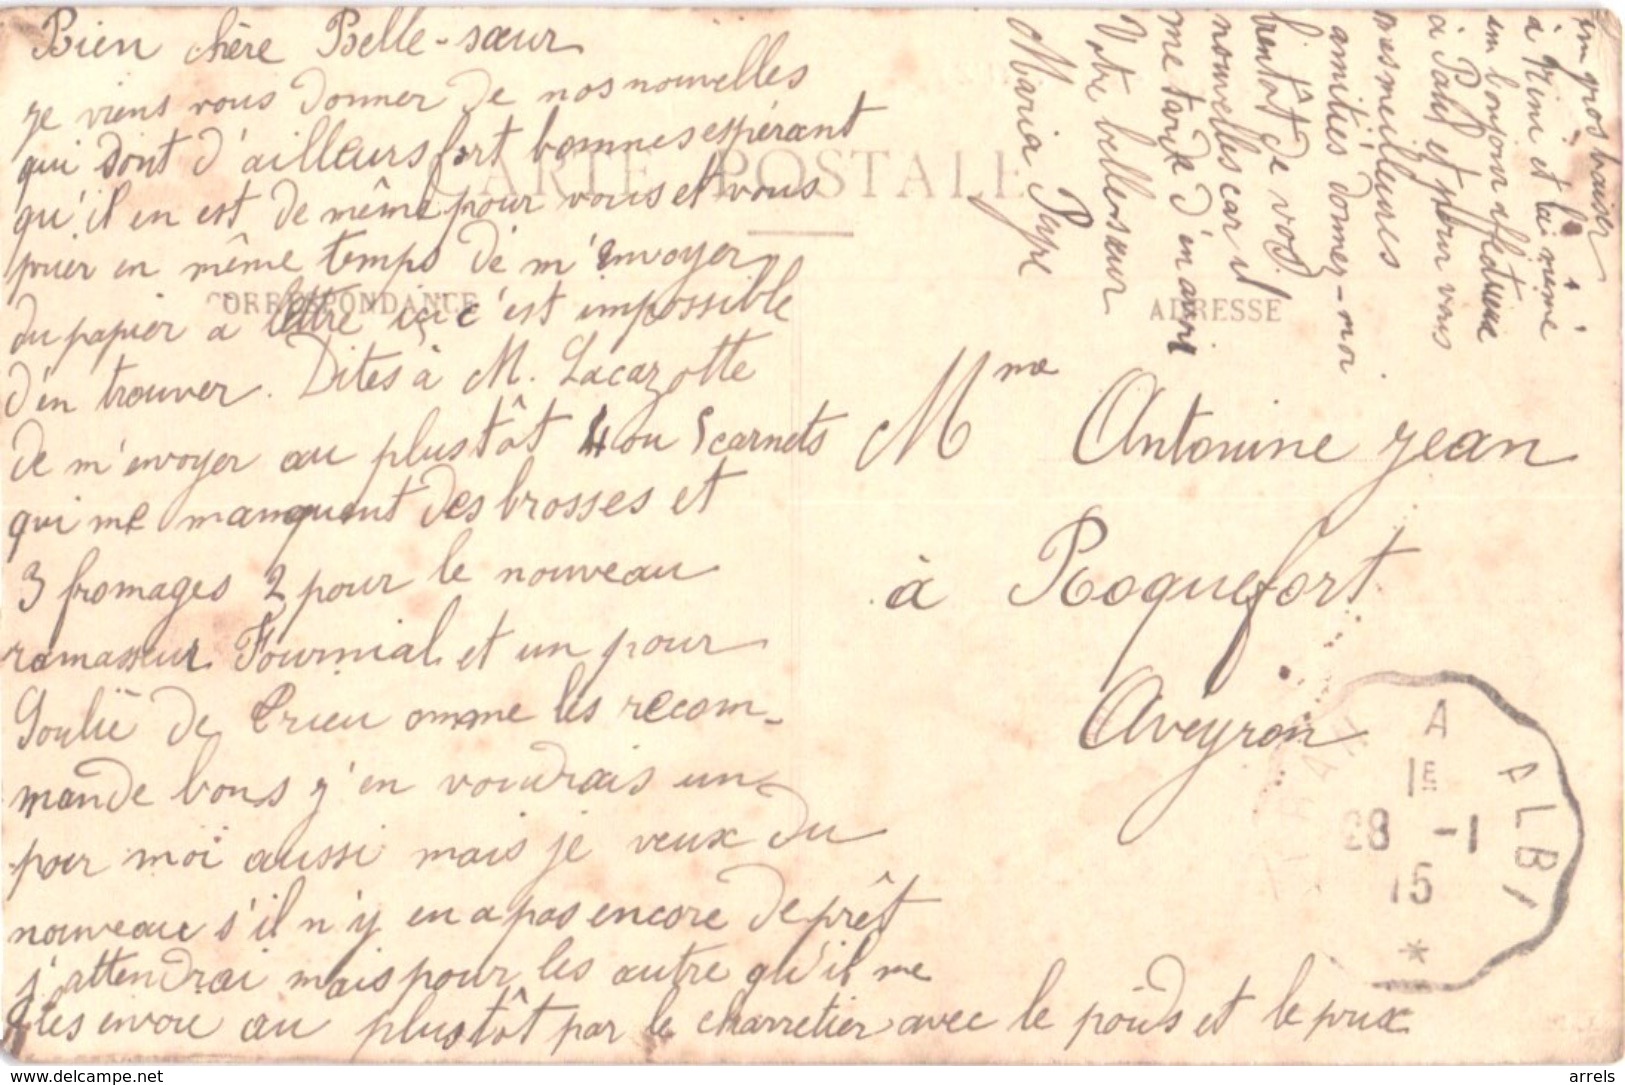 Bien chère Belle-sœur
je viens vous donner de nos nouvelles
qui sont d'ailleurs fort bonnes espérant
qu'il en est de même pour vous et vous
prier en même temps de m'envoyer
du papier a lettre ici c'est impossible
d'en trouver. Dites à M. Lacazotte
de m'envoyer au plustôt 4 ou 5 carnets
qui me manquent des brosses et
3 fromages 2 pour le nouveau
ramasseur Fournial et un pour
Soulié de Crieu omme les recom-
mande bons j'en voudrais un
pour moi aussi mais je veux du
nouveau s'il n'y en a pas encore de prêt
j'attendrai mais pour les autre qu'il me
les envoie au plustôt par le charretier avec le poids et le prix
un gros baiser
à Mimi et
un bonjour affectueux
à Paul et pour vous
mes meilleures
amitiés donnez-moi
bientôt de vos
nouvelles car il
me tarde d'en avoir
Votre belle-sœur
Maria Pype
CARTE POSTALE
CORRESPONDANCE
ADRESSE
Mme Antonine Jean
à Roquefort
Aveyron
A ALBI
1E
28 -1
15
*
delcampe.net
arrels